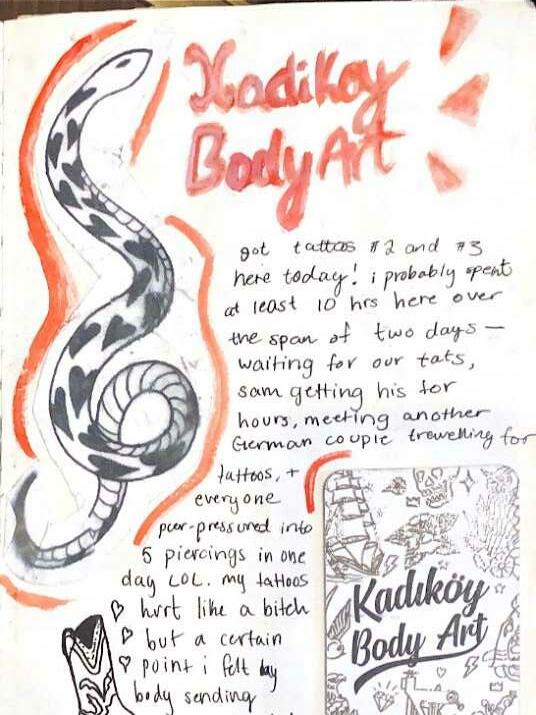 Kadikoy
Body Art
got tattoos #2 and #3
here today! i probably spent
at least 10 hrs here over
the span of two days —
waiting for our tats,
sam getting his for
hours, meeting another
German couple travelling for
tattoos, +
everyone
peer-pressured into
5 piercings in one
day LOL. my tattoos
hurt like a bitch
but a certain
point i felt my
body sending
Kadıköy
Body Art